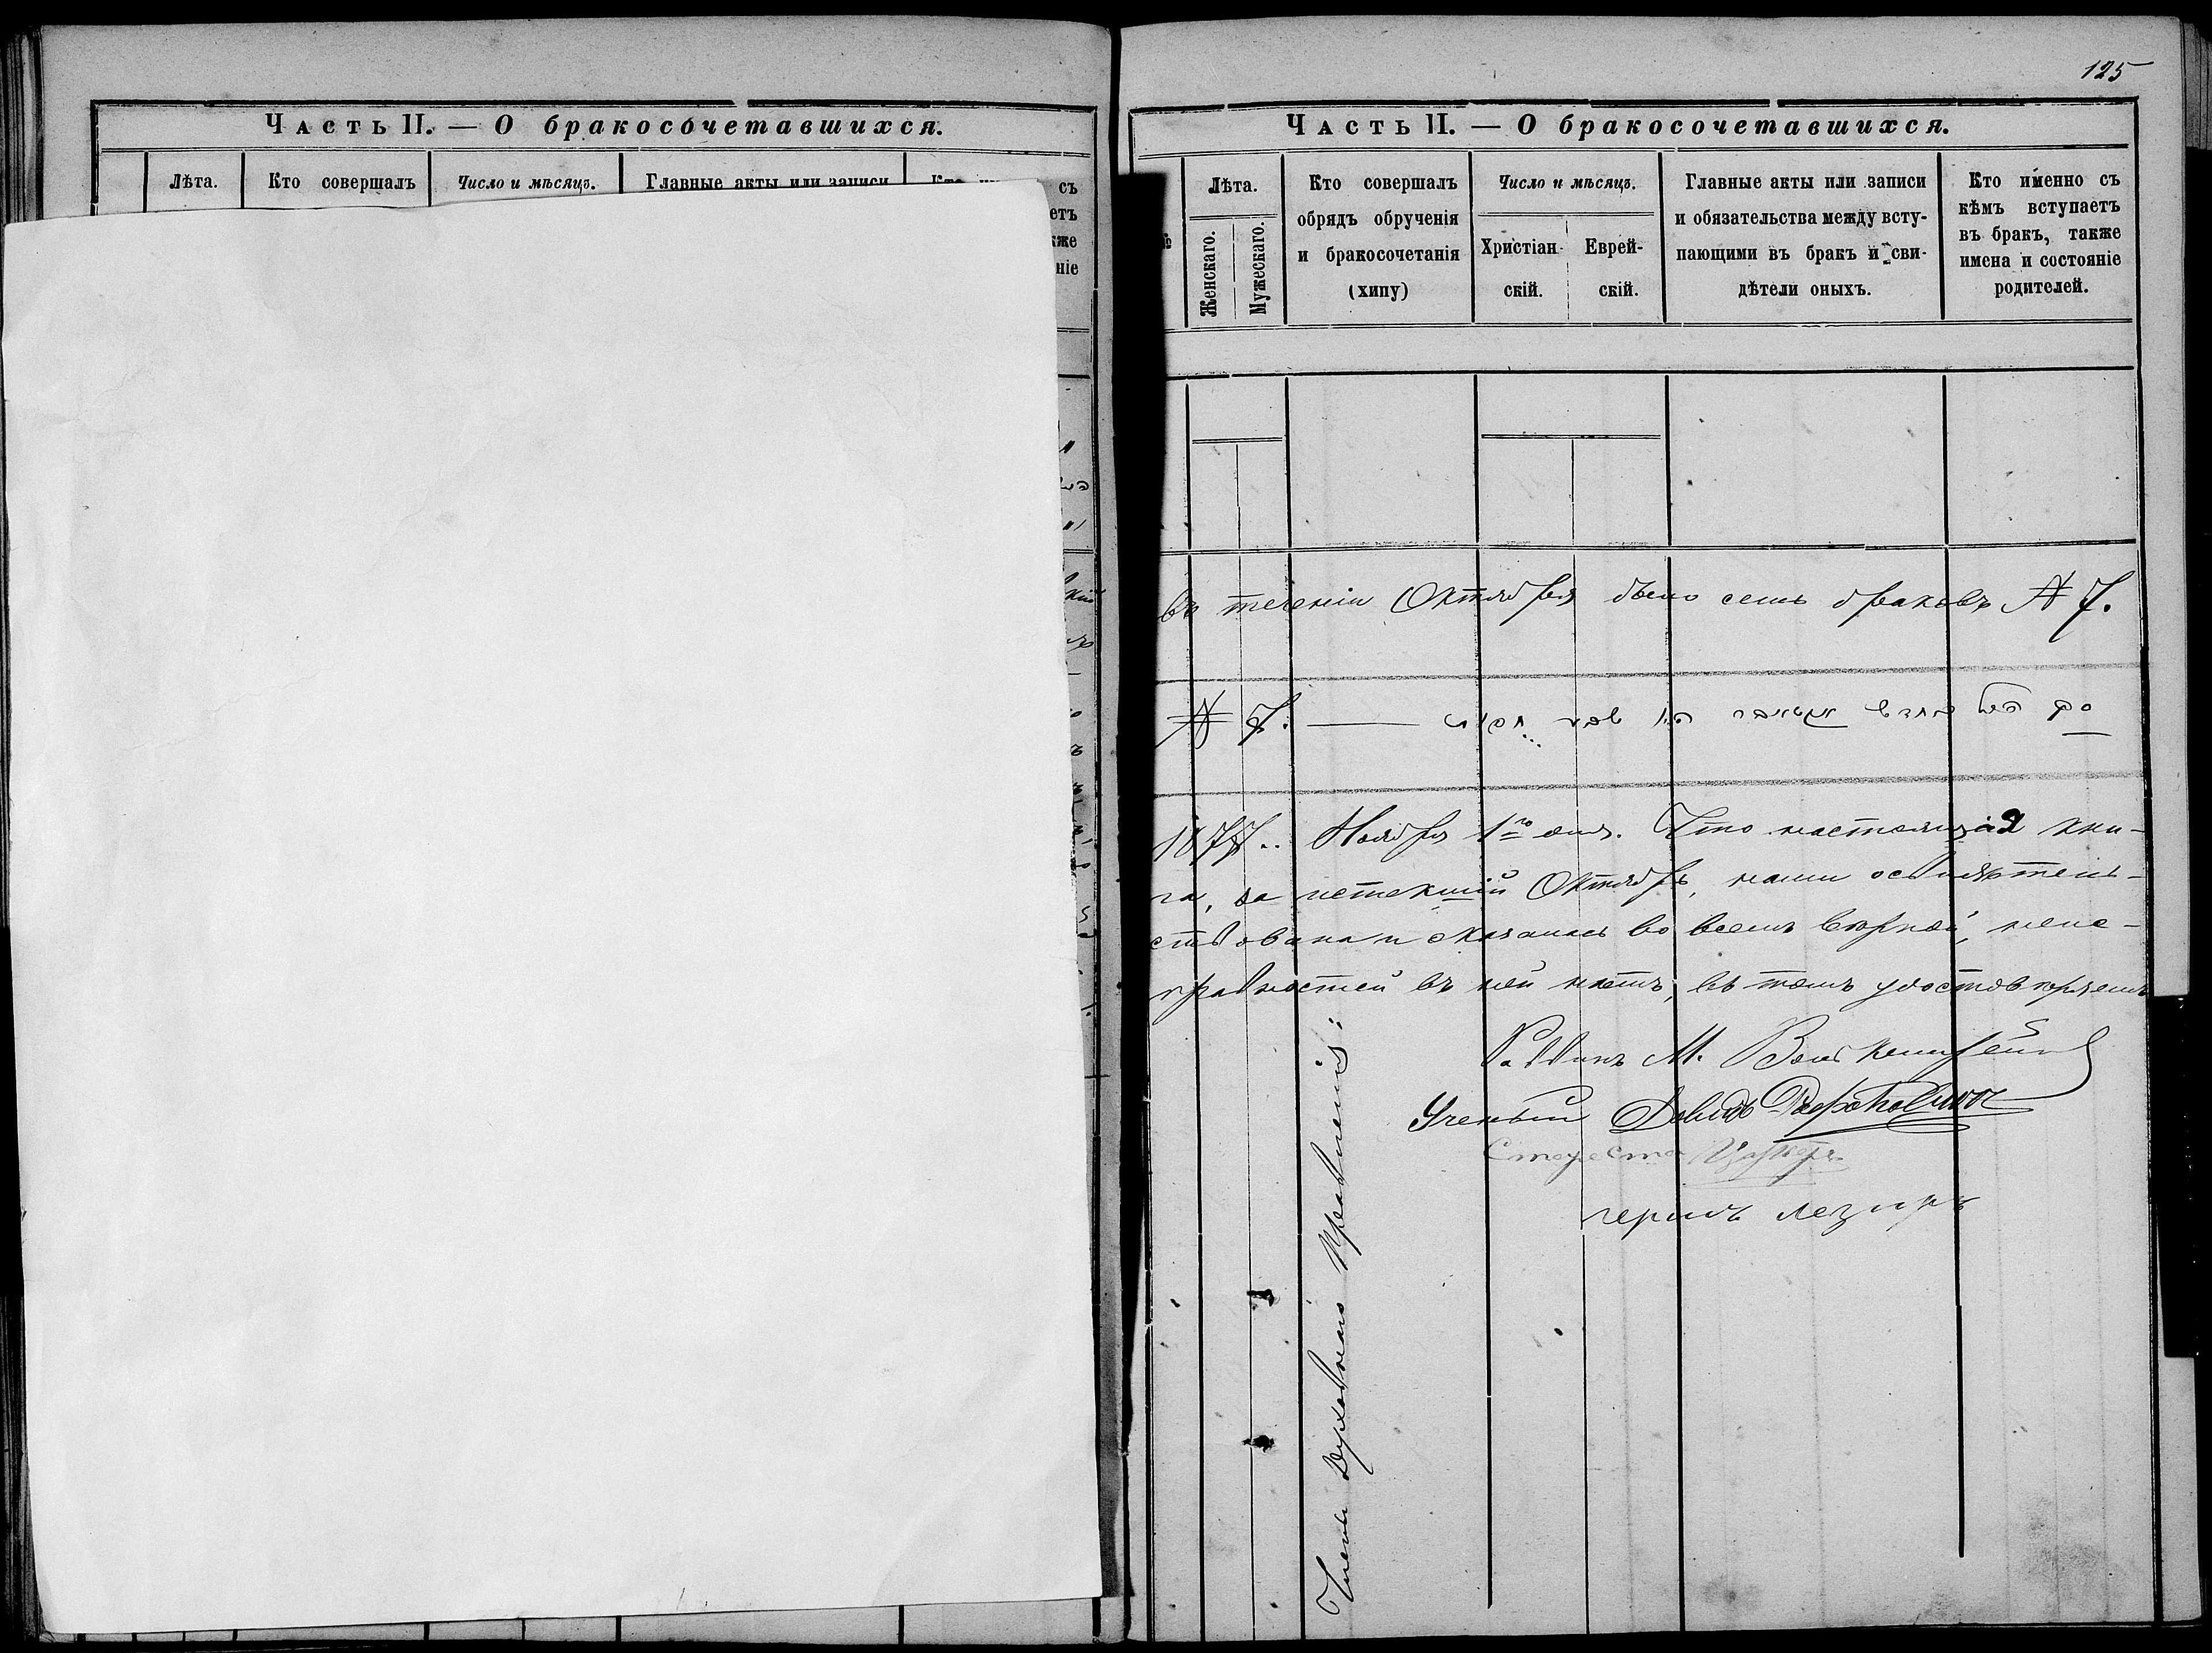 Часть II. — О бракосочетавшихся.
Лѣта.
Кто совершалъ
Число и мѣсяцъ.
Главные акты или записи
съ
етъ
кже
ніе
125
Часть II. — О бракосочетавшихся.
Лѣта.
Женскаго.
Мужескаго.
Кто совершалъ
обрядъ обрученія
и бракосочетанія
(хипу)
Число и мѣсяцъ.
Христіан-
скій.
Еврей-
скій.
Главные акты или записи
и обязательства между всту-
пающими въ бракъ и сви-
дѣтели оныхъ.
Кто именно съ
кѣмъ вступаетъ
въ бракъ, также
имена и состояніе
родителей.
въ теченіи Октября было семь браковъ № 7.
№ 7.
1877.. Ноября 1го дня. Что настоящая кни-
га, за истекшій Октябрь, нами освидѣтель-
ствована и оказалась во всемъ вѣрной, неис-
правностей въ ней нѣтъ, въ томъ удостовѣряемъ
Члены Духовнаго Правленія:
Раввинъ М.
Ученый Давидъ
Староста